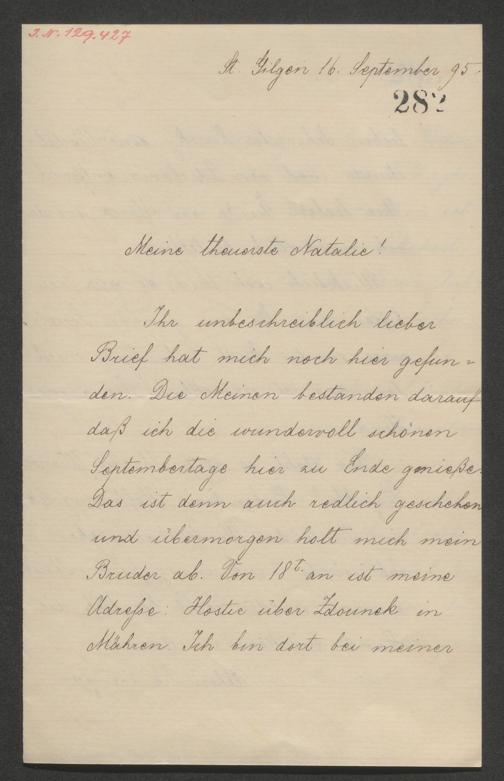 I.N. 129.427
St. Gilgen 16. September 95.
282
Meine theuerste Natalie!
Ihr unbeschreiblich lieber
Brief hat mich noch hier gefun=
den. Die Meinen bestanden darauf
daß ich die wundervoll schönen
Septembertage hier zu Ende genieße.
Das ist denn auch redlich geschehen
und übermorgen holt mich mein
Bruder ab. Von 18t. an ist meine
Adreße: Hostic über Zdounek in
Mähren. Ich bin dort bei meiner